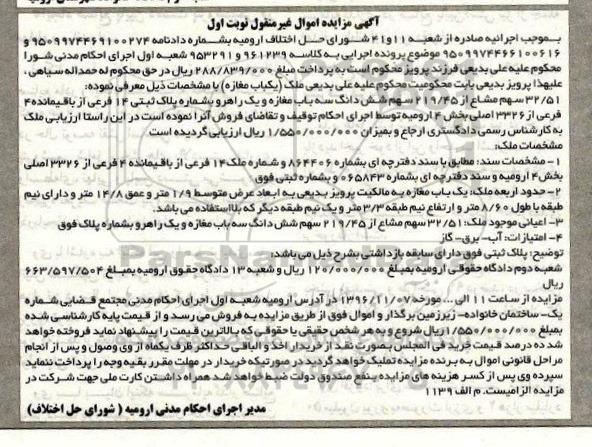 آگهی مزایده اموال غیرمنقول نوبت اول
بموجب اجرائیه صادره از شعبه ۱۱و۴۱ شورای حل اختلاف ارومیه بشماره دادنامه ۹۵۰۹۹۷۴۴۶۹۱۰۰۲۷۴ و
۹۵۰۹۹۷۴۴۶۶۱۰۰۶۱۶ موضوع پرونده اجرایی به کلاسه ۹۶۱۲۳۹ و ۹۵۳۲۹۱ شعبه اول اجرای احکام مدنی شورا
محکوم علیه علی بدیعی فرزند پرویز محکوم است به پرداخت مبلغ ۲۸۸/۸۳۹/۰۰۰ ریال در حق محکوم له حمداله سپاهی،
علیهذا پرویز بدیعی بابت محکومیت محکوم علیه علی بدیعی ملک (یکباب مغازه) با مشخصات ذیل معرفی نموده:
۳۲/۵۱ سهم مشاع از ۲۱۹/۴۵ سهم شش دانگ سه باب مغازه و یک راهرو بشماره پلاک ثبتی ۱۴ فرعی از باقیمانده ۴
فرعی از ۳۳۲۶ اصلی بخش ۴ ارومیه توسط اجرای احکام توقیف و تقاضای فروش آنرا نموده است در این راستا ارزیابی ملک
به کارشناس رسمی دادگستری ارجاع و بمیزان ۱/۵۵۰/۰۰۰/۰۰۰ ریال ارزیابی گردیده است.
مشخصات ملک:
۱- مشخصات سند: مطابق با سند دفترچه ای بشماره ۸۶۴۴۰۶ و شماره ملک ۱۴ فرعی از باقیمانده ۴ فرعی از ۳۳۲۶ اصلی
بخش ۴ ارومیه و سند دفترچه ای بشماره ۰۶۵۸۴۳ و بشماره ثبتی فوق
۲- حدود اربعه ملک: یک باب مغازه به مالکیت پرویز بدیعی به ابعاد عرض متوسط ۱/۹ متر و عمق ۱۴/۸ متر و دارای نیم
طبقه با طول ۸/۶۰ متر و ارتفاع نیم طبقه ۳/۳ متر و یک نیم طبقه دیگر که بلااستفاده می باشد.
۳- اعیانی موجود ملک: ۳۲/۵۱ سهم مشاع از ۲۱۹/۴۵ سهم شش دانگ سه باب مغازه و یک راهرو بشماره پلاک فوق
۴- امتیازات: آب- برق- گاز
توضیح: پلاک ثبتی فوق دارای سابقه بازداشتی بشرح ذیل می باشد:
شعبه دوم دادگاه حقوقی ارومیه بمبلغ ۱۲۰/۰۰۰/۰۰۰ ریال و شعبه ۱۳ دادگاه حقوق ارومیه بمبلغ ۶۶۳/۵۹۷/۵۰۴
ریال
مزایده از ساعت ۱۱ الی... مورخه ۱۳۹۶/۱۱/۰۷ در آدرس ارومیه شعبه اول اجرای احکام مدنی مجتمع قضایی شماره
یک- ساختمان خانواده- زیرزمین برگذار و اموال فوق از طریق مزایده به فروش می رسد و از قیمت پایه کارشناسی شده
بمبلغ ۱/۵۵۰/۰۰۰/۰۰۰ ریال شروع و به هر شخص حقیقی یا حقوقی که بالاترین قیمت را پیشنهاد نماید فروخته خواهد
شد ده درصد قیمت خرید فی المجلس بصورت نقد از خریدار اخذ و الباقی حداکثر ظرف یکماه از وی وصول و پس از انجام
مراحل قانونی اموال به برنده مزایده تملیک خواهد گردید در صورتیکه خریدار در مهلت مقرر بقیه وجه را پرداخت ننماید
سپرده وی پس از کسر هزینه های مزایده بنفع صندوق دولت ضبط خواهد شد همراه داشتن کارت ملی جهت شرکت در
مزایده الزامیست. م الف ۱۱۳۹
مدیر اجرای احکام مدنی ارومیه (شورای حل اختلاف)